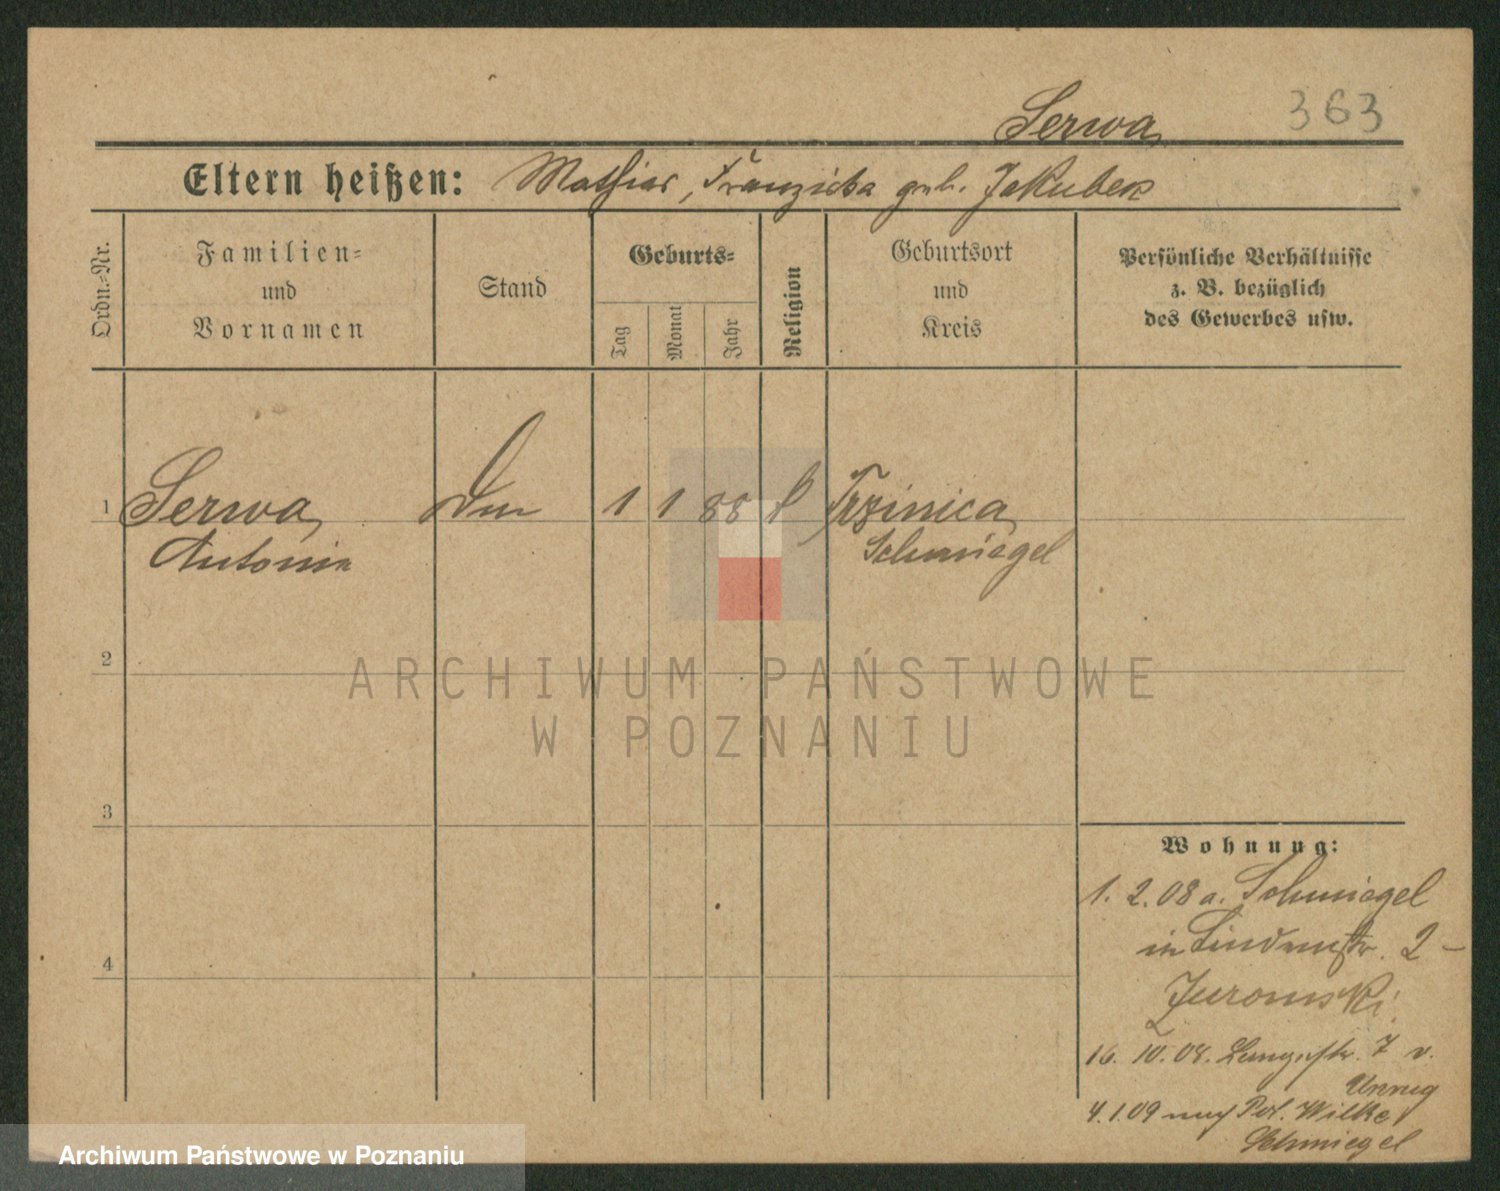 363
Serwa
Eltern heißen: Mathias, Franziska geb. Jakubek
Ordn.-Nr.
Familien-
und
Vornamen
Stand
Geburts-
Tag
Monat
Jahr
Religion
Geburtsort
und
Kreis
Persönliche Verhältnisse
z. B. bezüglich
des Gewerbes usw.
1 Serwa 1 1 88 Trzinica
Antonie Schmiegel
2
ARCHIWUM PAŃSTWOWE
W POZNANIU
3
Wohnung:
1. 2. 08 a. Schmiegel
in Lindenstr. 2 –
4
Juromski
16. 10. 08. Langestr. 7 v.
Unrug
4. 1. 09 nach Wilke
Schmiegel
Archiwum Państwowe w Poznaniu